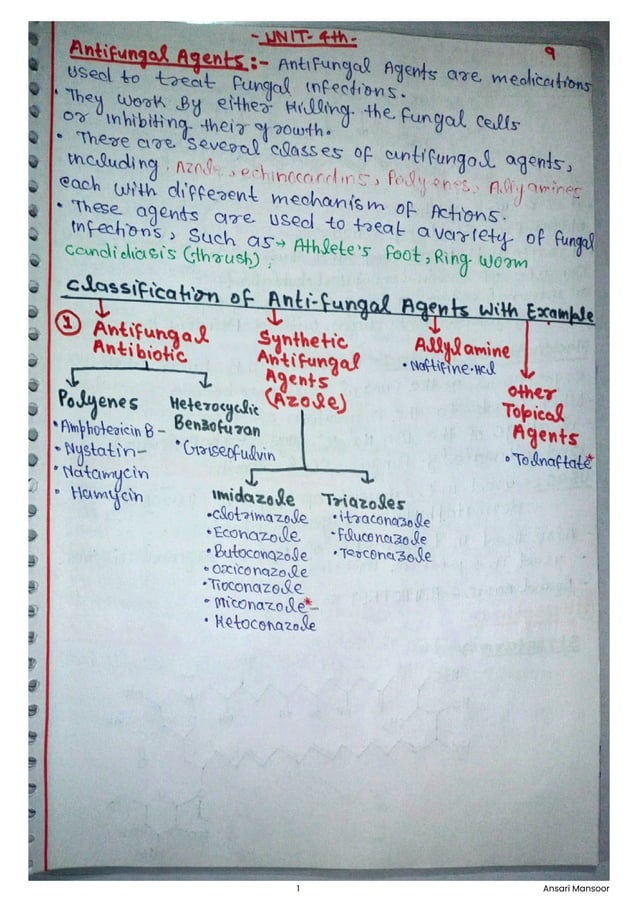 - UNIT- 4th -
9
Antifungal Agents :- Antifungal Agents are medications
used to treat fungal infections.
• They work By either killing the fungal cells
or inhibiting their growth.
• There are several classes of antifungal agents,
including Azole, echinocandins, Polyenes, Allyamines
each with different mechanism of Actions.
• These agents are used to treat a variety of fungal
Infections, Such as → Athlete's foot, Ring worm
Candidiasis (thrush).
Classification of Anti-fungal Agents With Example
① Antifungal
Antibiotic
Synthetic
Antifungal
Agents
(Azole)
Allylamine
• Naftifine.Hcl
other
Topical
Agents
• Tolnaftate*
Polyenes
• Amphotericin B -
• Nystatin -
• Natamycin
• Hamycin
Heterocyclic
Benzofuran
• Griseofulvin
Imidazole
• Clotrimazole
• Econazole
• Butoconazole
• Oxiconazole
• Tioconazole
• Miconazole* -
• Ketoconazole
Triazoles
• itraconazole
• Fluconazole
• Terconazole
1
Ansari Mansoor